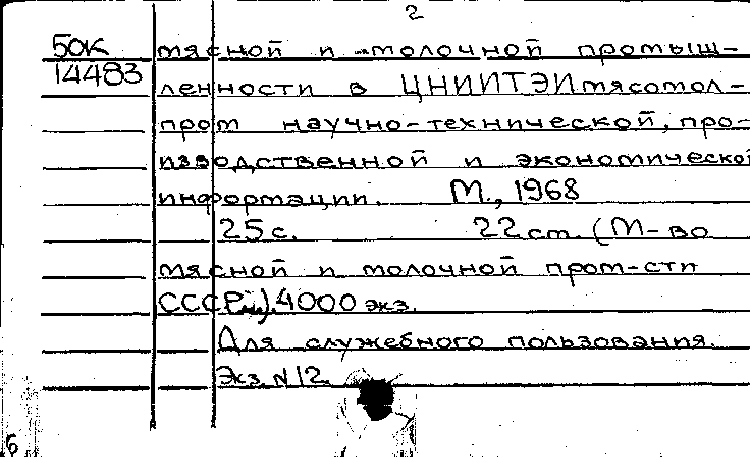 2
50к мясной и молочной промыш-
14483 ленности в ЦНИИТЭИмясомол-
пром научно-технической, про-
изводственной и экономической
информации. М., 1968
25с. 22см. (М-во
мясной и молочной пром-сти
СССР). 4000 экз.
Для служебного пользования.
Экз. N 12.
6